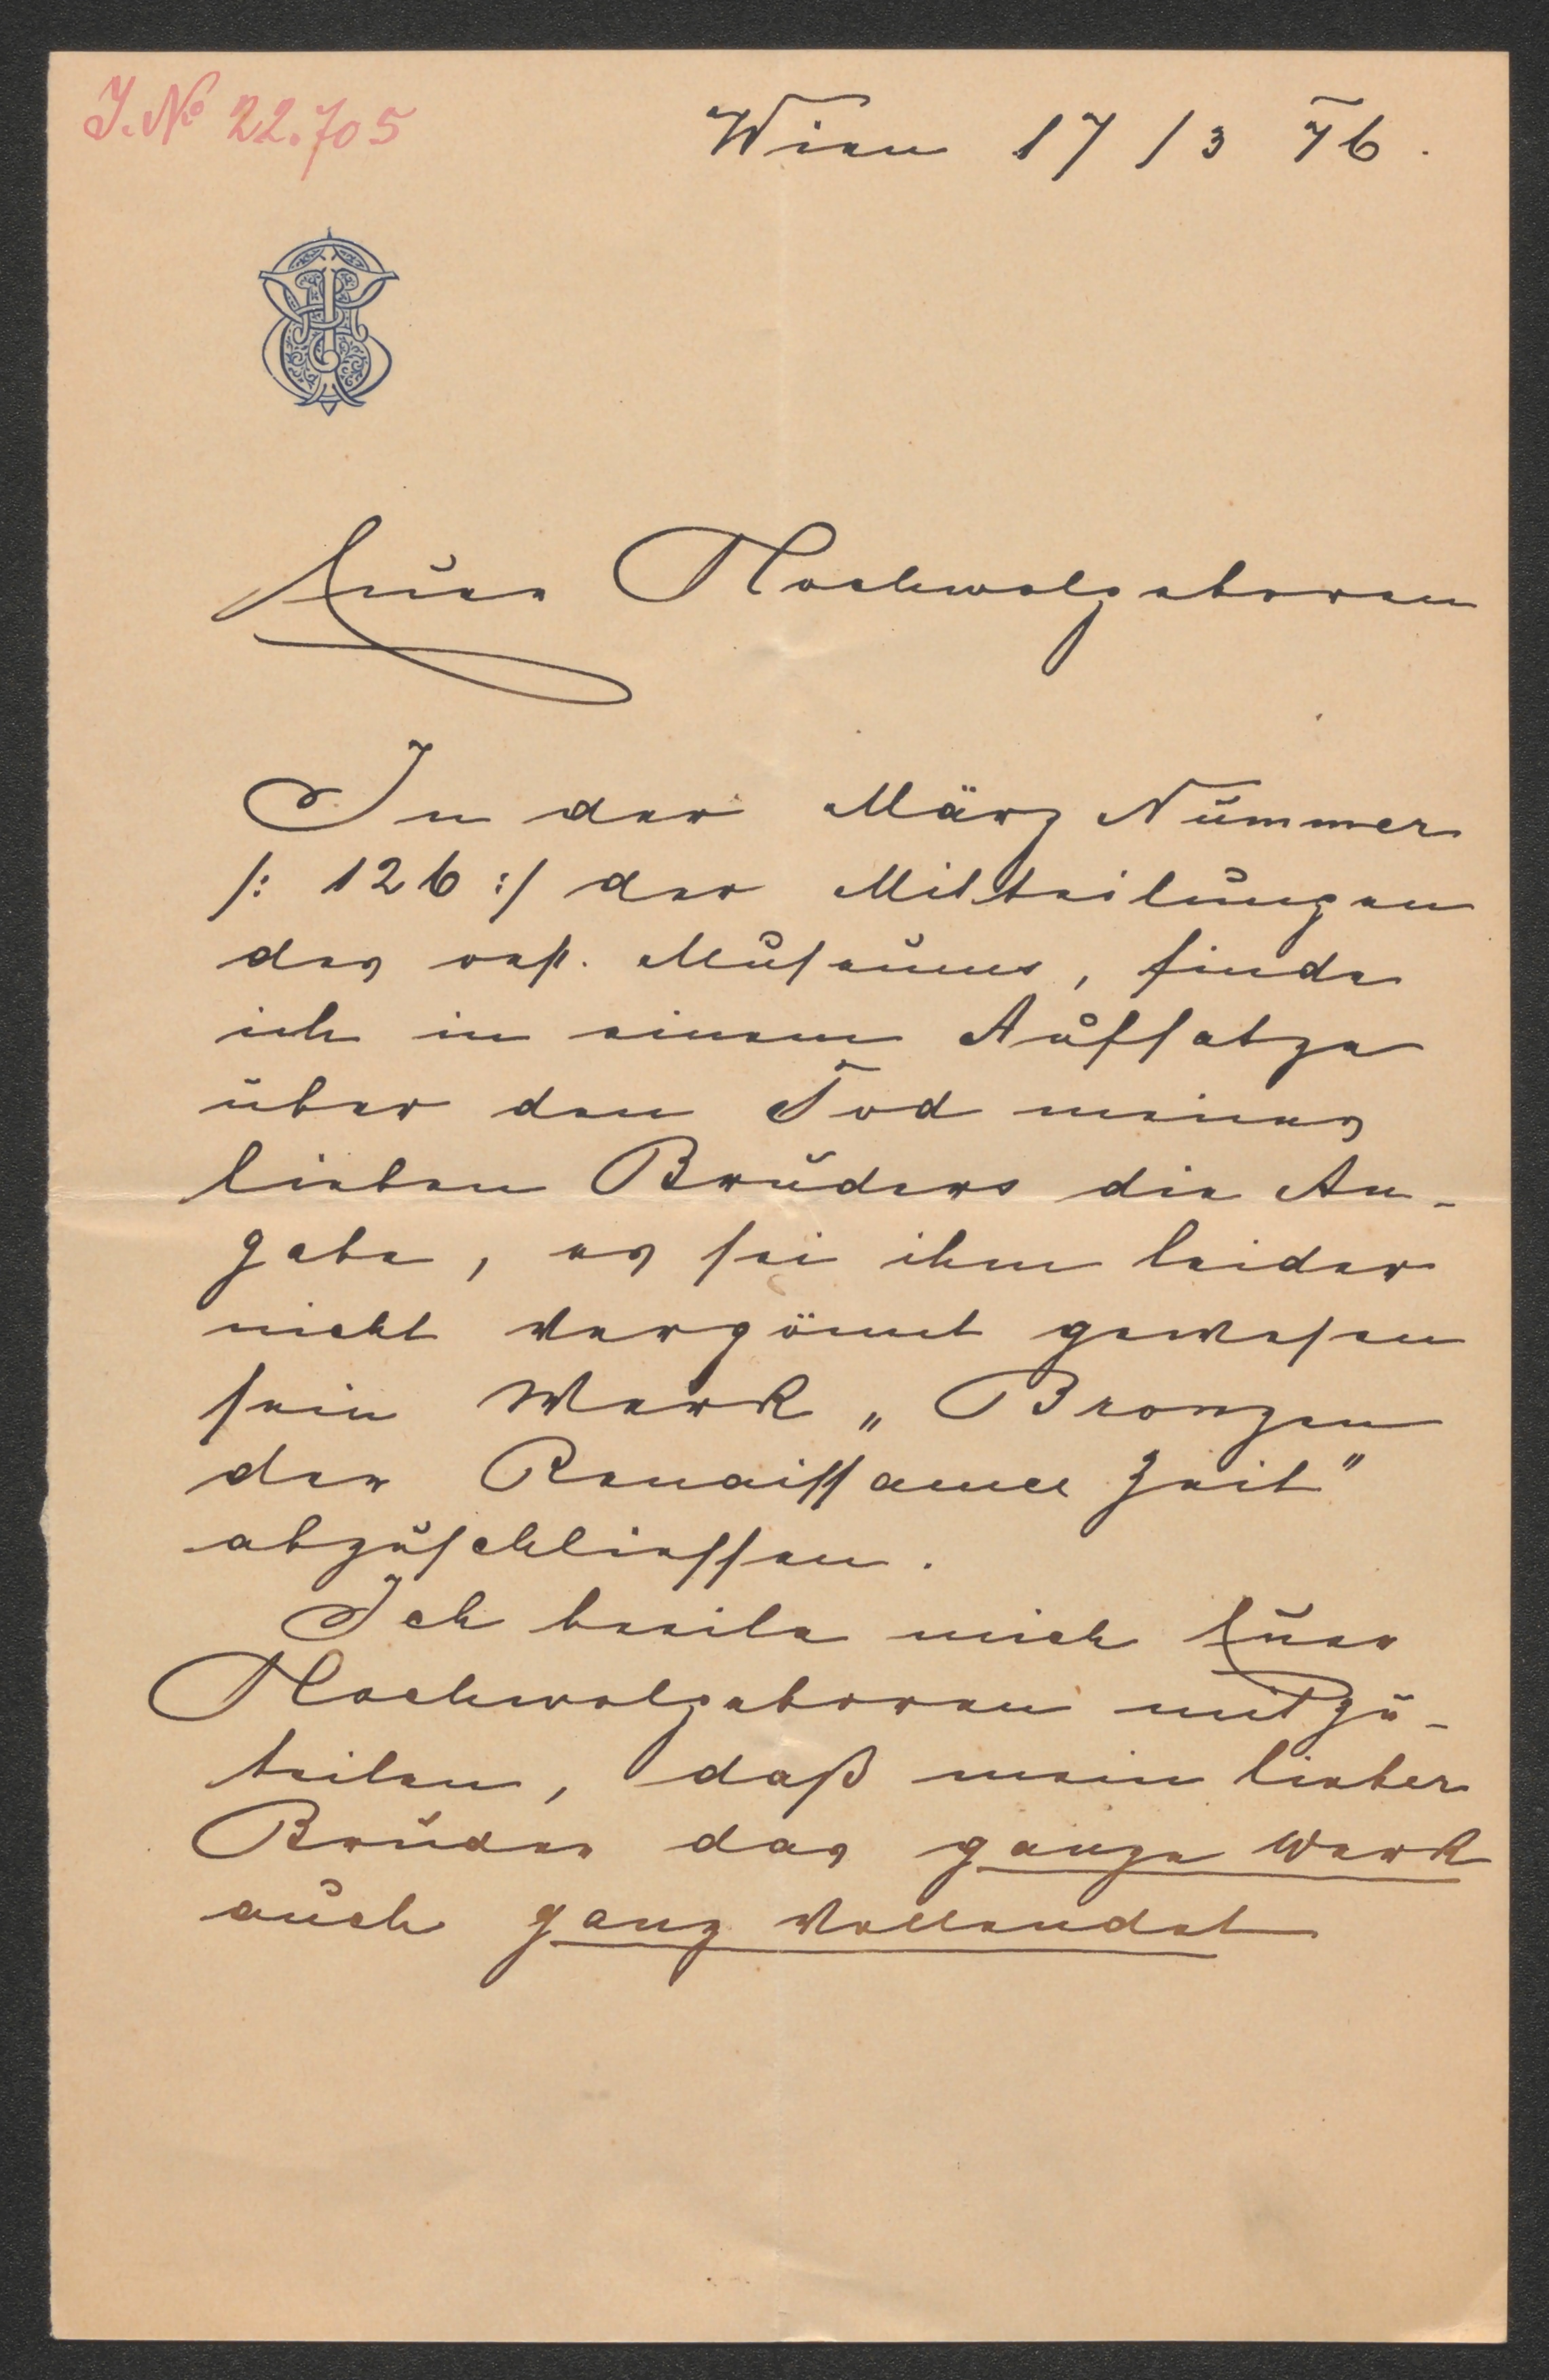 J. No 22.705
Wien 17/3 76.
Euer Hochwolgeboren
In der März Nummer
/: 126 :/ der Mittheilungen
des oest. Museums, finde
ich in einem Aufsatze
über den Tod meines
lieben Bruders die An-
gabe, es sei ihm leider
nicht vergönnt gewesen
sein Werk „Bronzen
der Renaissance Zeit"
abzuschliessen.
Ich beeile mich Euer
Hochwolgeboren mitzu-
teilen, daß mein lieber
Bruder das ganze Werk
auch ganz vollendet